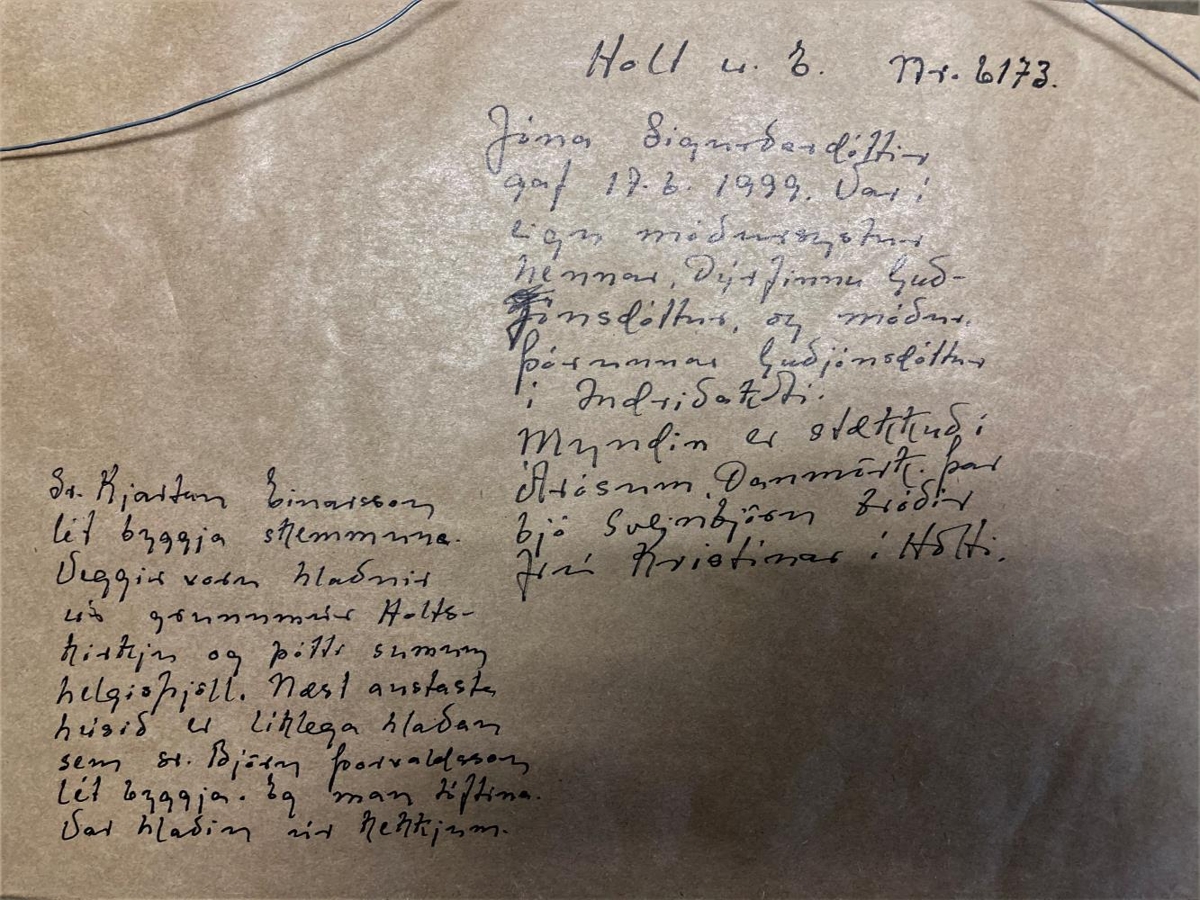 Holt u. E. Nr. 6173.
Jóna Sigurðardóttir
gaf 17.6. 1999. Var í
eign móðursystur
hennar, Dýrfinnu Guð-
jónsdóttur, og móður
Þórunnar Guðjónsdóttur
í Indriðakoti.
Myndin er stækkuð í
Árósum, Danmörk. Þar
bjó Sveinbjörn bróðir
frú Kristínar í Holti.
Sr. Kjartan Einarsson
lét byggja skemmuna.
Veggir voru hlaðnir
úr grunnmúr Holts-
kirkju og þótti sumum
helgispjöll. Næst austasta
húsið er líklega hlaðan
sem sr. Björn Þorvaldsson
lét byggja. Eg man tóftina.
Var hlaðin úr kekkjum.